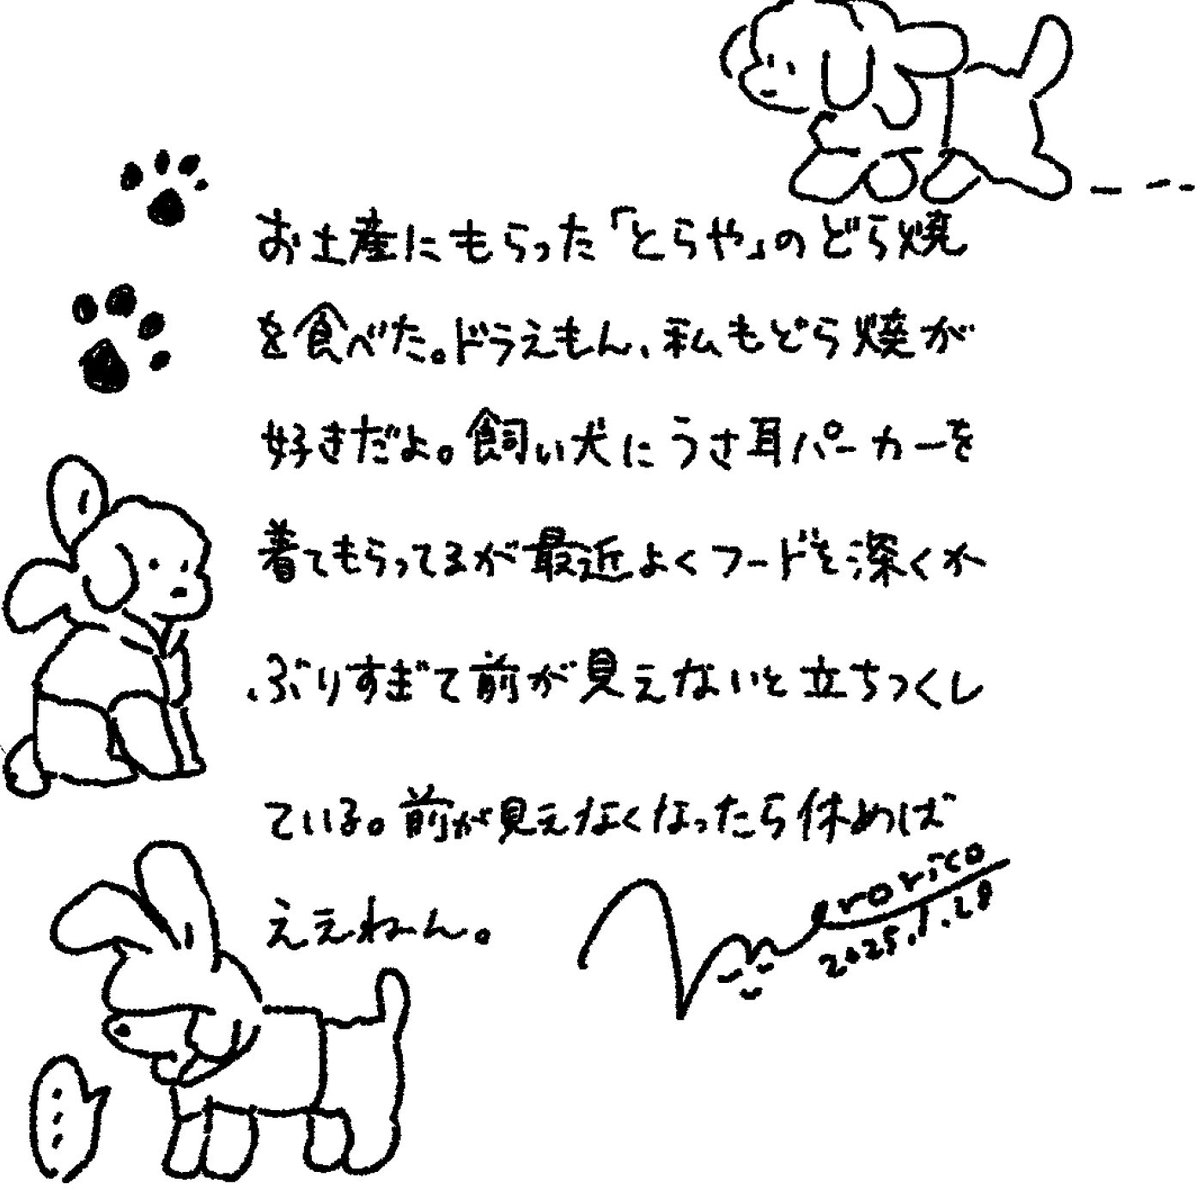 お土産にもらった「とらや」のどら焼
を食べた。ドラえもん、私もどら焼が
好きだよ。飼い犬にうさ耳パーカーを
着てもらってるが最近よくフードを深くか
ぶりすぎて前が見えないと立ちつくし
ている。前が見えなくなったら休めば
ええねーん。
rorico
2025.1.28